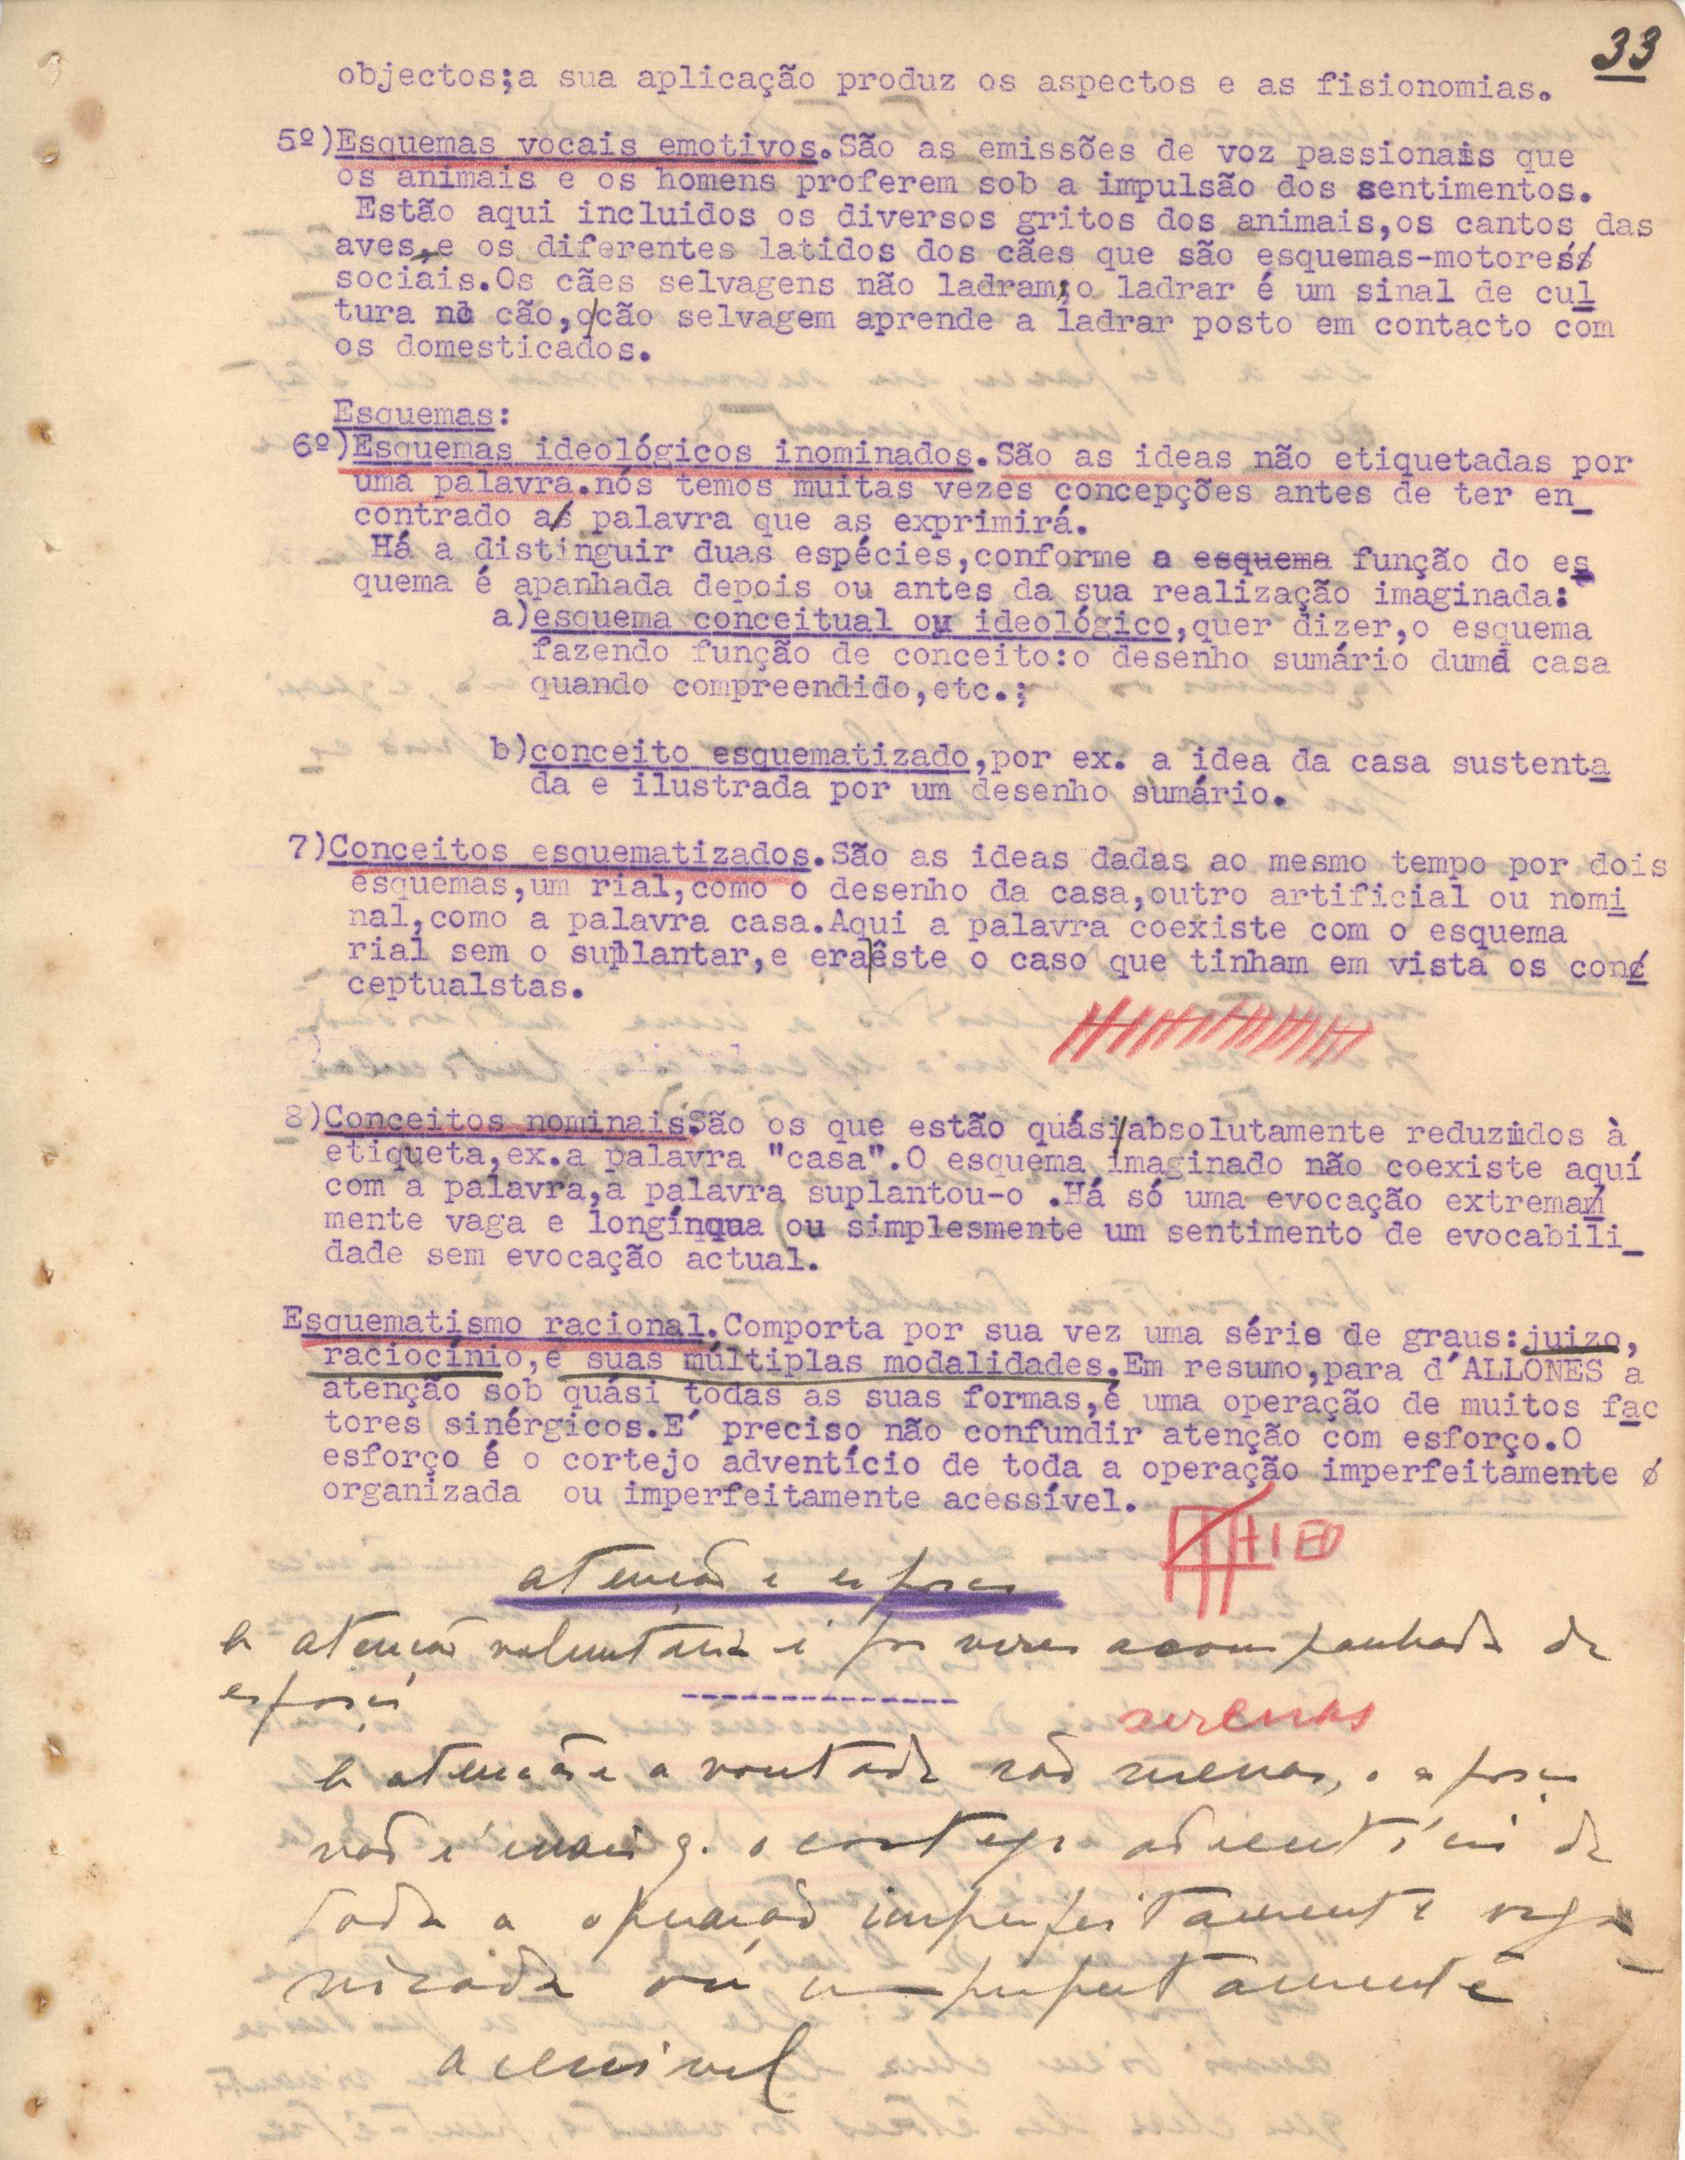 33
objectos;a sua aplicação produz os aspectos e as fisionomias.
5º)Esquemas vocais emotivos.São as emissões de voz passionais que
os animais e os homens proferem sob a impulsão dos sentimentos.
Estão aqui incluidos os diversos gritos dos animais,os cantos das
aves,e os diferentes latidos dos cães que são esquemas-motores
sociais.Os cães selvagens não ladram;o ladrar é um sinal de cul
tura no cão,o cão selvagem aprende a ladrar posto em contacto com
os domesticados.
Esquemas:
6º)Esquemas ideológicos inominados.São as ideas não etiquetadas por
uma palavra.nós temos muitas vezes concepções antes de ter en_
contrado a palavra que as exprimirá.
Há a distinguir duas espécies,conforme a esquema função do es
quema é apanhada depois ou antes da sua realização imaginada:
a)esquema conceitual ou ideológico,quer dizer,o esquema
fazendo função de conceito:o desenho sumário duma casa
quando compreendido,etc.;
b)conceito esquematizado,por ex. a idea da casa sustenta
da e ilustrada por um desenho sumário.
7)Conceitos esquematizados.São as ideas dadas ao mesmo tempo por dois
esquemas,um rial,como o desenho da casa,outro artificial ou nomi
nal,como a palavra casa.Aqui a palavra coexiste com o esquema
rial sem o suplantar,e era êste o caso que tinham em vista os con
ceptualstas.
8)Conceitos nominais.São os que estão quási absolutamente reduzidos à
etiqueta,ex.a palavra "casa".O esquema imaginado não coexiste aquí
com a palavra,a palavra suplantou-o .Há só uma evocação extrema
mente vaga e longínqua ou simplesmente um sentimento de evocabili_
dade sem evocação actual.
Esquematismo racional.Comporta por sua vez uma série de graus:juizo,
raciocínio,e suas múltiplas modalidades.Em resumo,para d'ALLONES a
atenção sob quási todas as suas formas,é uma operação de muitos fac
tores sinérgicos.E' preciso não confundir atenção com esforço.O
esforço é o cortejo adventício de toda a operação imperfeitamente
organizada ou imperfeitamente acessível.
atenção e esforço
A atenção voluntária é por vezes acompanhada de
esforço
serenas
A atenção e a vontade são serenas, o esforço
não é mais q. o cortejo adventício de
toda a operação imperfeitamente orga
nizada ou imperfeitamente
acessível